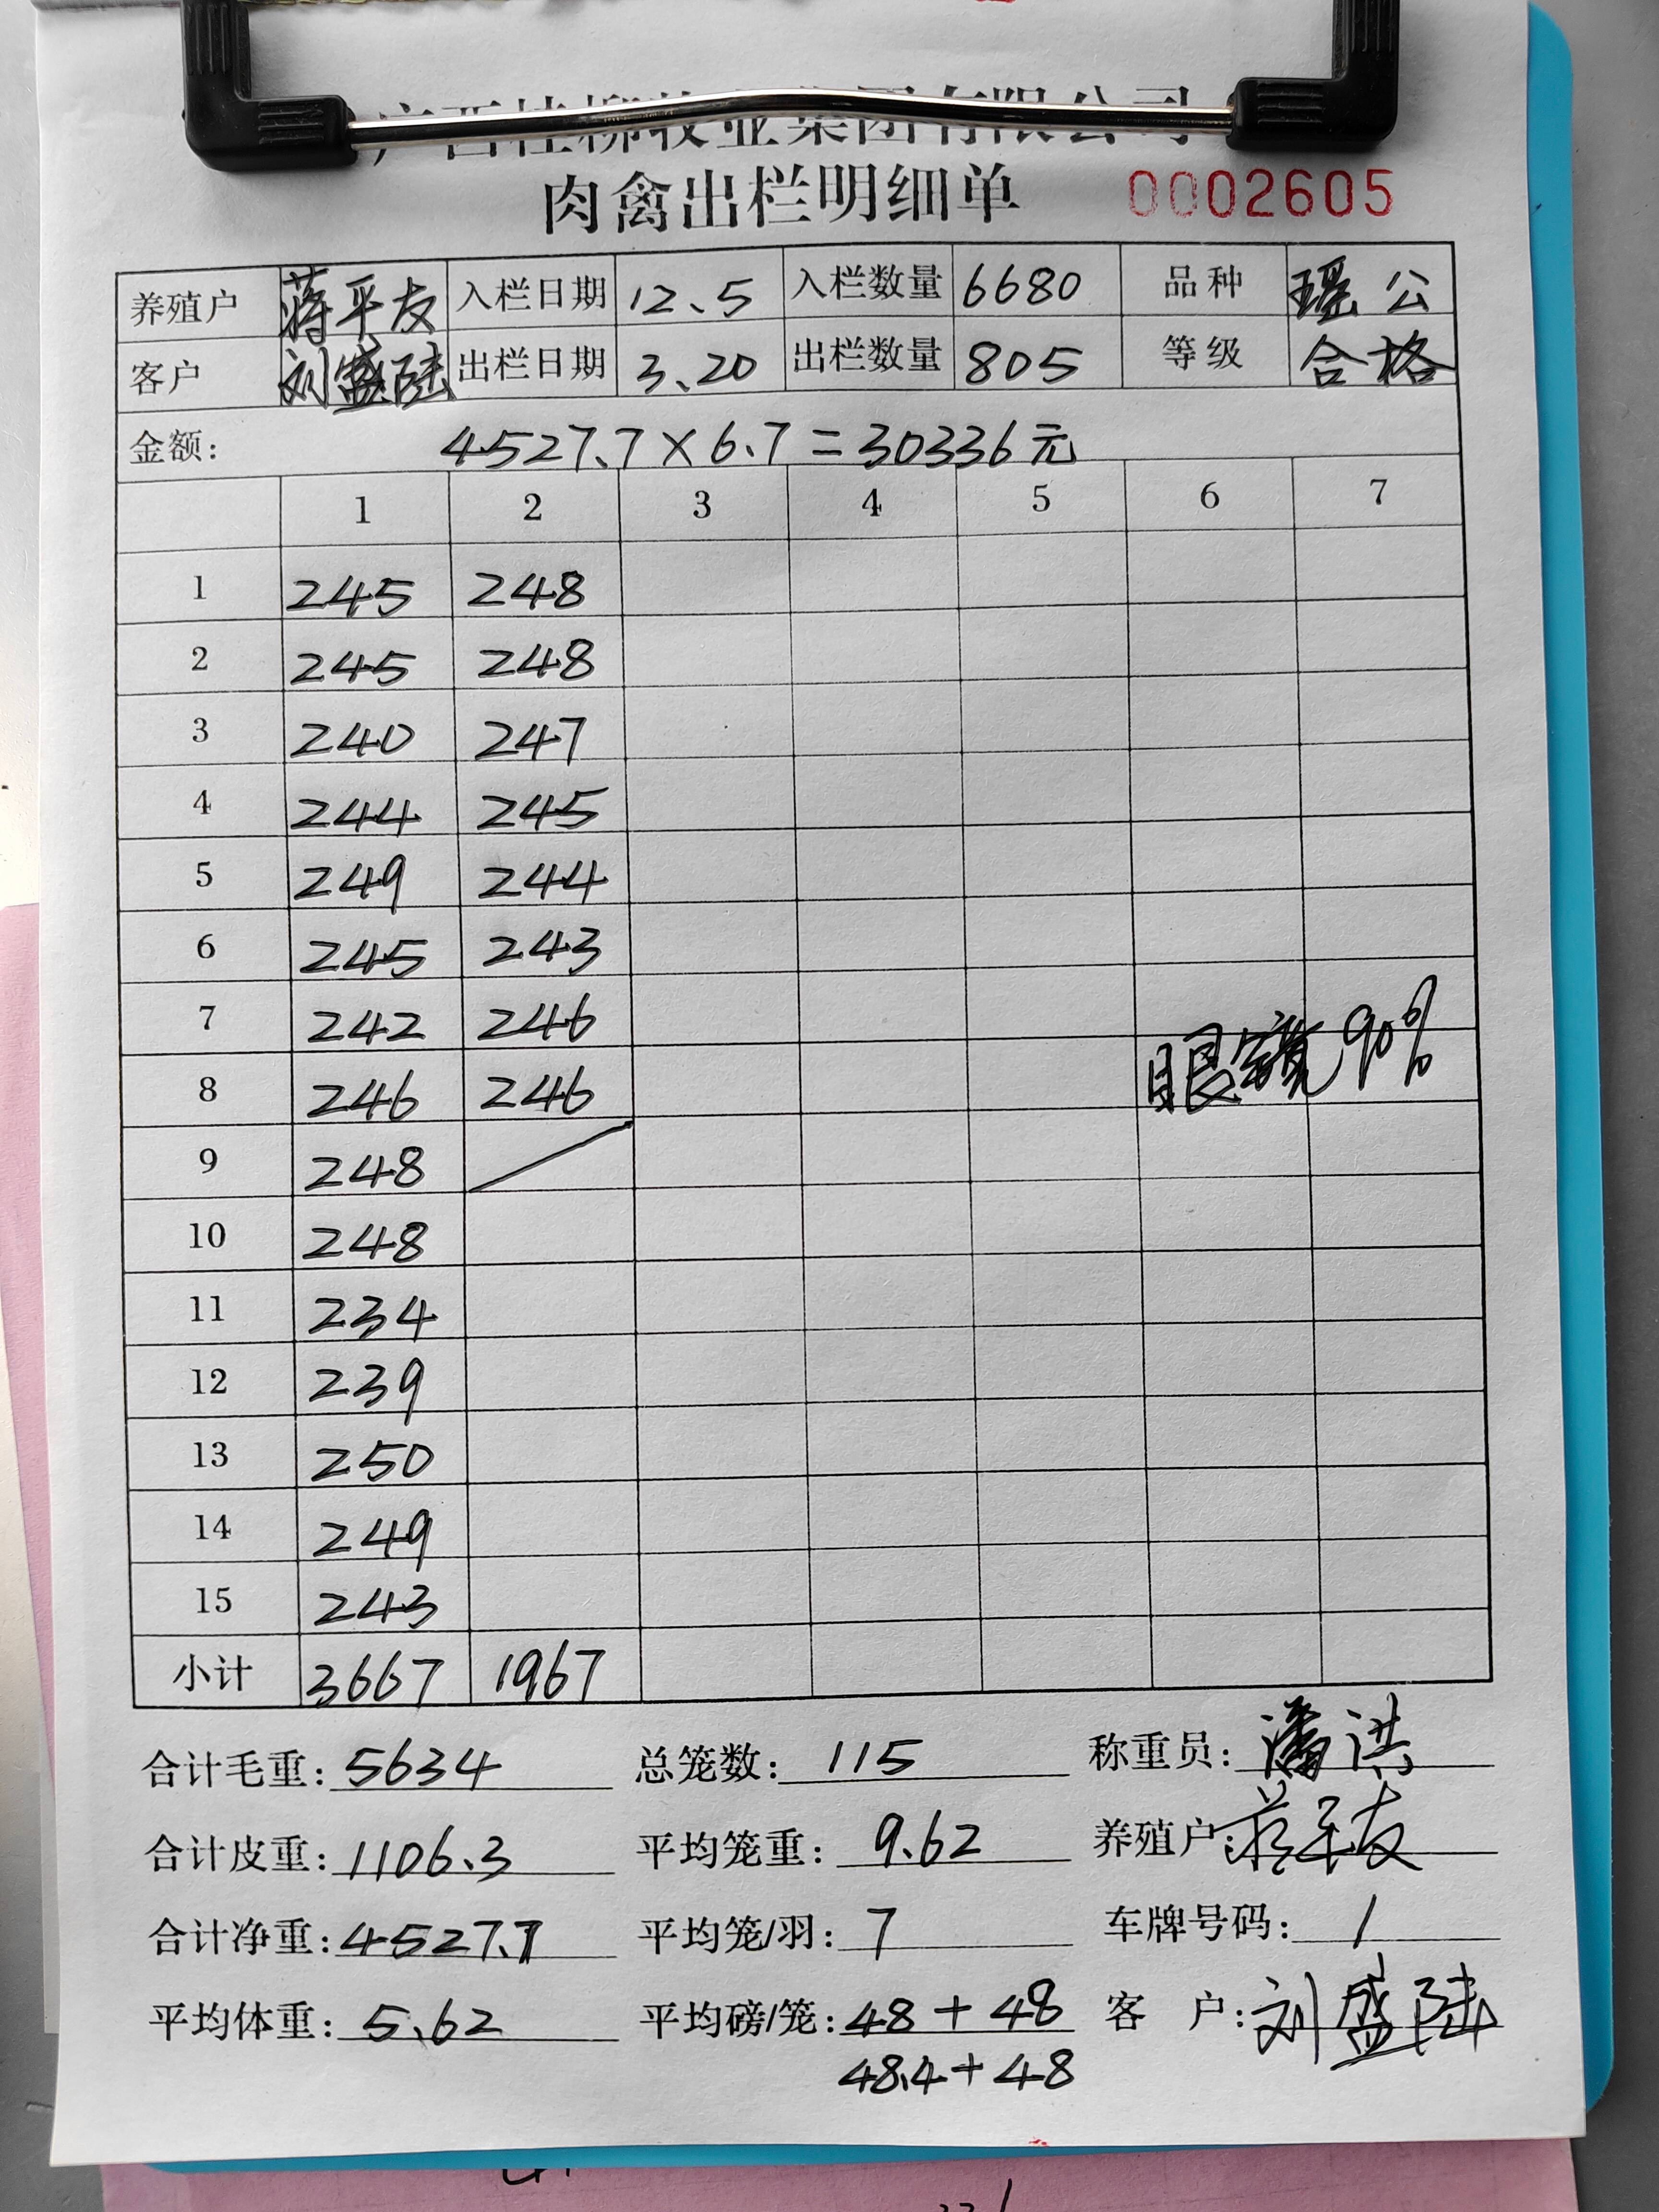 广西桂柳牧业集团有限公司
肉禽出栏明细单 0002605
养殖户 蒋平友 入栏日期 12.5 入栏数量 6680 品种 瑶公
客户 刘盛陆 出栏日期 3.20 出栏数量 805 等级 合格
金额: 4527.7×6.7=30336元
1 2 3 4 5 6 7
1 245 248
2 245 248
3 240 247
4 244 245
5 249 244
6 245 243
7 242 246
眼镜90%
8 246 246
9 248
10 248
11 234
12 239
13 250
14 249
15 243
小计 3667 1967
合计毛重: 5634 总笼数: 115 称重员: 潘洪
合计皮重: 1106.3 平均笼重: 9.62 养殖户: 蒋平友
合计净重: 4527.7 平均笼/羽: 7 车牌号码: 1
平均体重: 5.62 平均磅/笼: 48+48 客 户: 刘盛陆
48.4+48